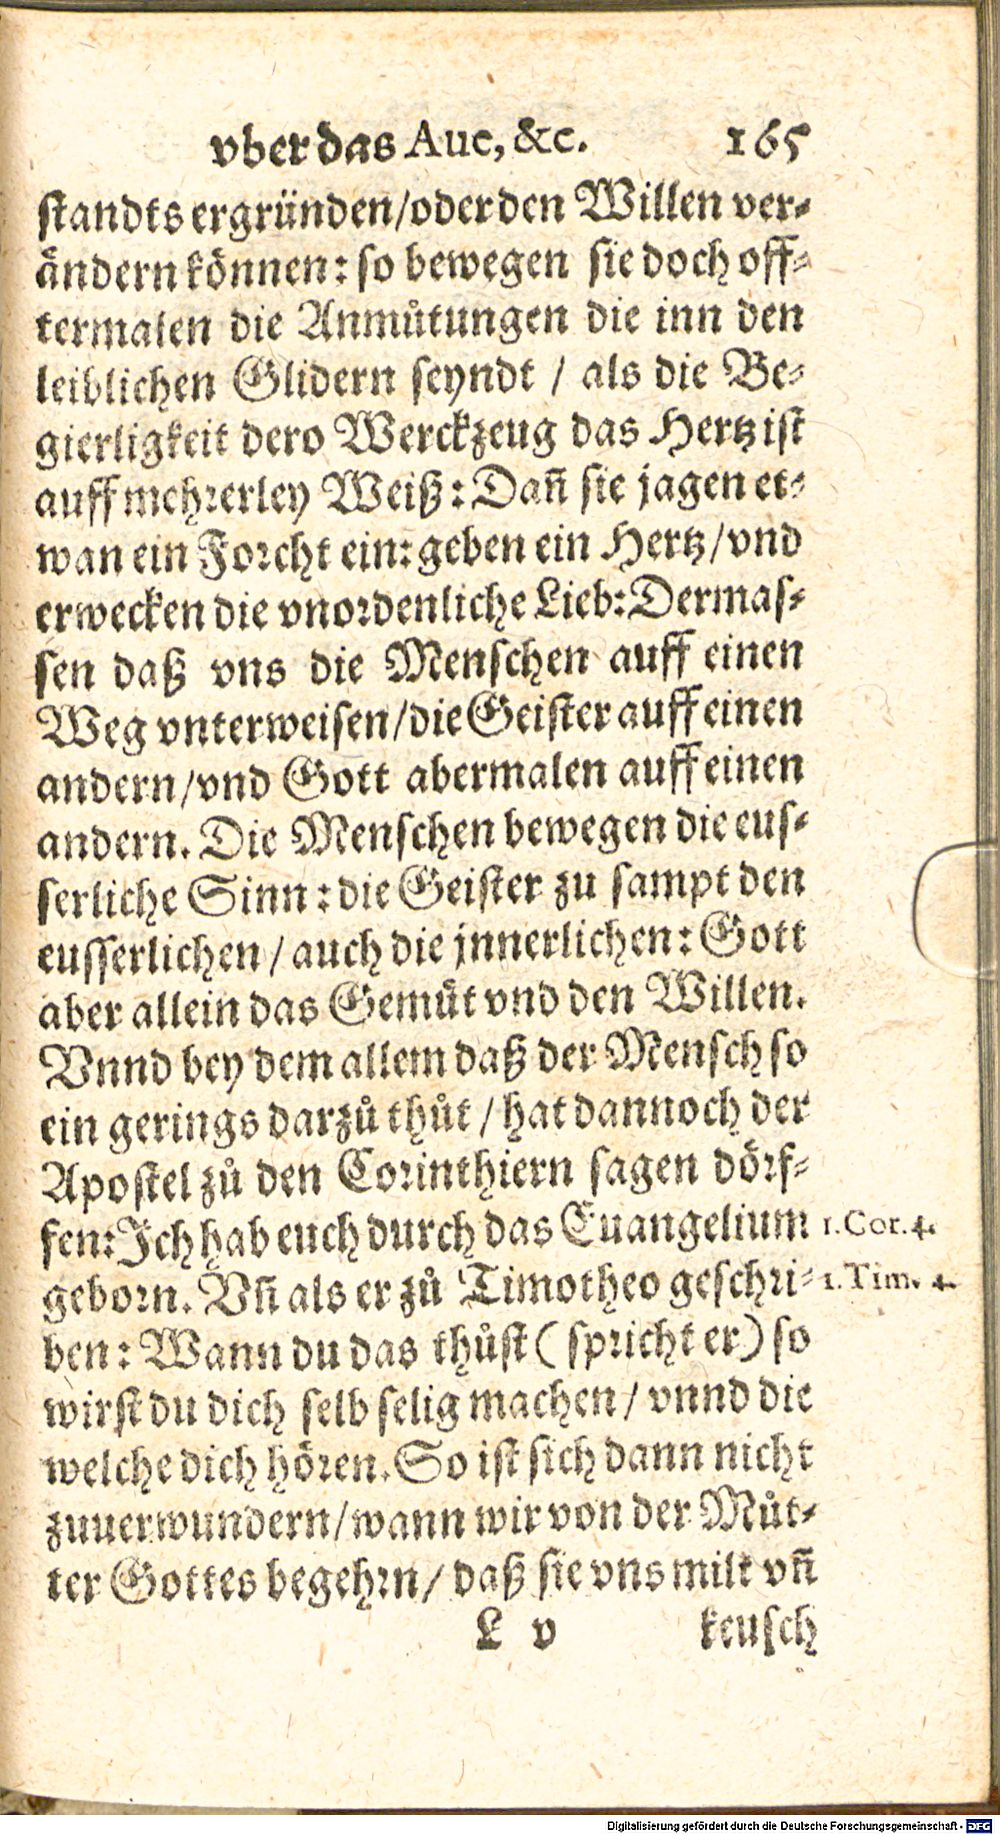 vber das Aue, &c. 165
ſtandts ergründen/oder den Willen ver-
ändern können: ſo bewegen ſie doch off-
termalen die Anmůtungen die inn den
leiblichen Glidern ſeyndt / als die Be-
gierligkeit dero Werckzeug das Hertz iſt
auff mehrerley Weiß: Dañ ſie jagen et-
wan ein Forcht ein: geben ein Hertz/vnd
erwecken die vnordenliche Lieb: Dermaſ-
ſen daß vns die Menſchen auff einen
Weg vnterweiſen/die Geiſter auff einen
andern/vnd Gott abermalen auff einen
andern. Die Menſchen bewegen die euſ-
ſerliche Sinn: die Geiſter zu ſampt den
euſſerlichen / auch die jnnerlichen: Gott
aber allein das Gemůt vnd den Willen.
Vnnd bey dem allem daß der Menſch ſo
ein gerings darzů thůt / hat dannoch der
Apoſtel zů den Corinthiern ſagen dörf-
fen: Ich hab euch durch das Euangelium
1. Cor. 4.
geborn. Vñ als er zů Timotheo geſchri-
1. Tim. 4.
ben: Wann du das thůſt (ſpricht er) ſo
wirſt du dich ſelb ſelig machen / vnnd die
welche dich hören. So iſt ſich dann nicht
zuuerwundern/wann wir von der Můt-
ter Gottes begehrn/ daß ſie vns milt vñ
L v keuſch
Digitalisierung gefördert durch die Deutsche Forschungsgemeinschaft - DFG